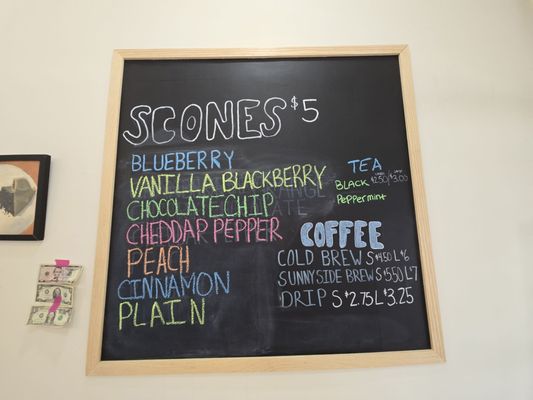 SCONES $5
BLUEBERRY
VANILLA BLACKBERRY
CHOCOLATE CHIP
CHEDDAR PEPPER
PEACH
CINNAMON
PLAIN
TEA
BLACK $2.50/$3.00
PEPPERMINT
COFFEE
COLD BREW S $4.50 L $6
SUNNYSIDE BREW S $5.50 L 7
DRIP S $2.75 L $3.25